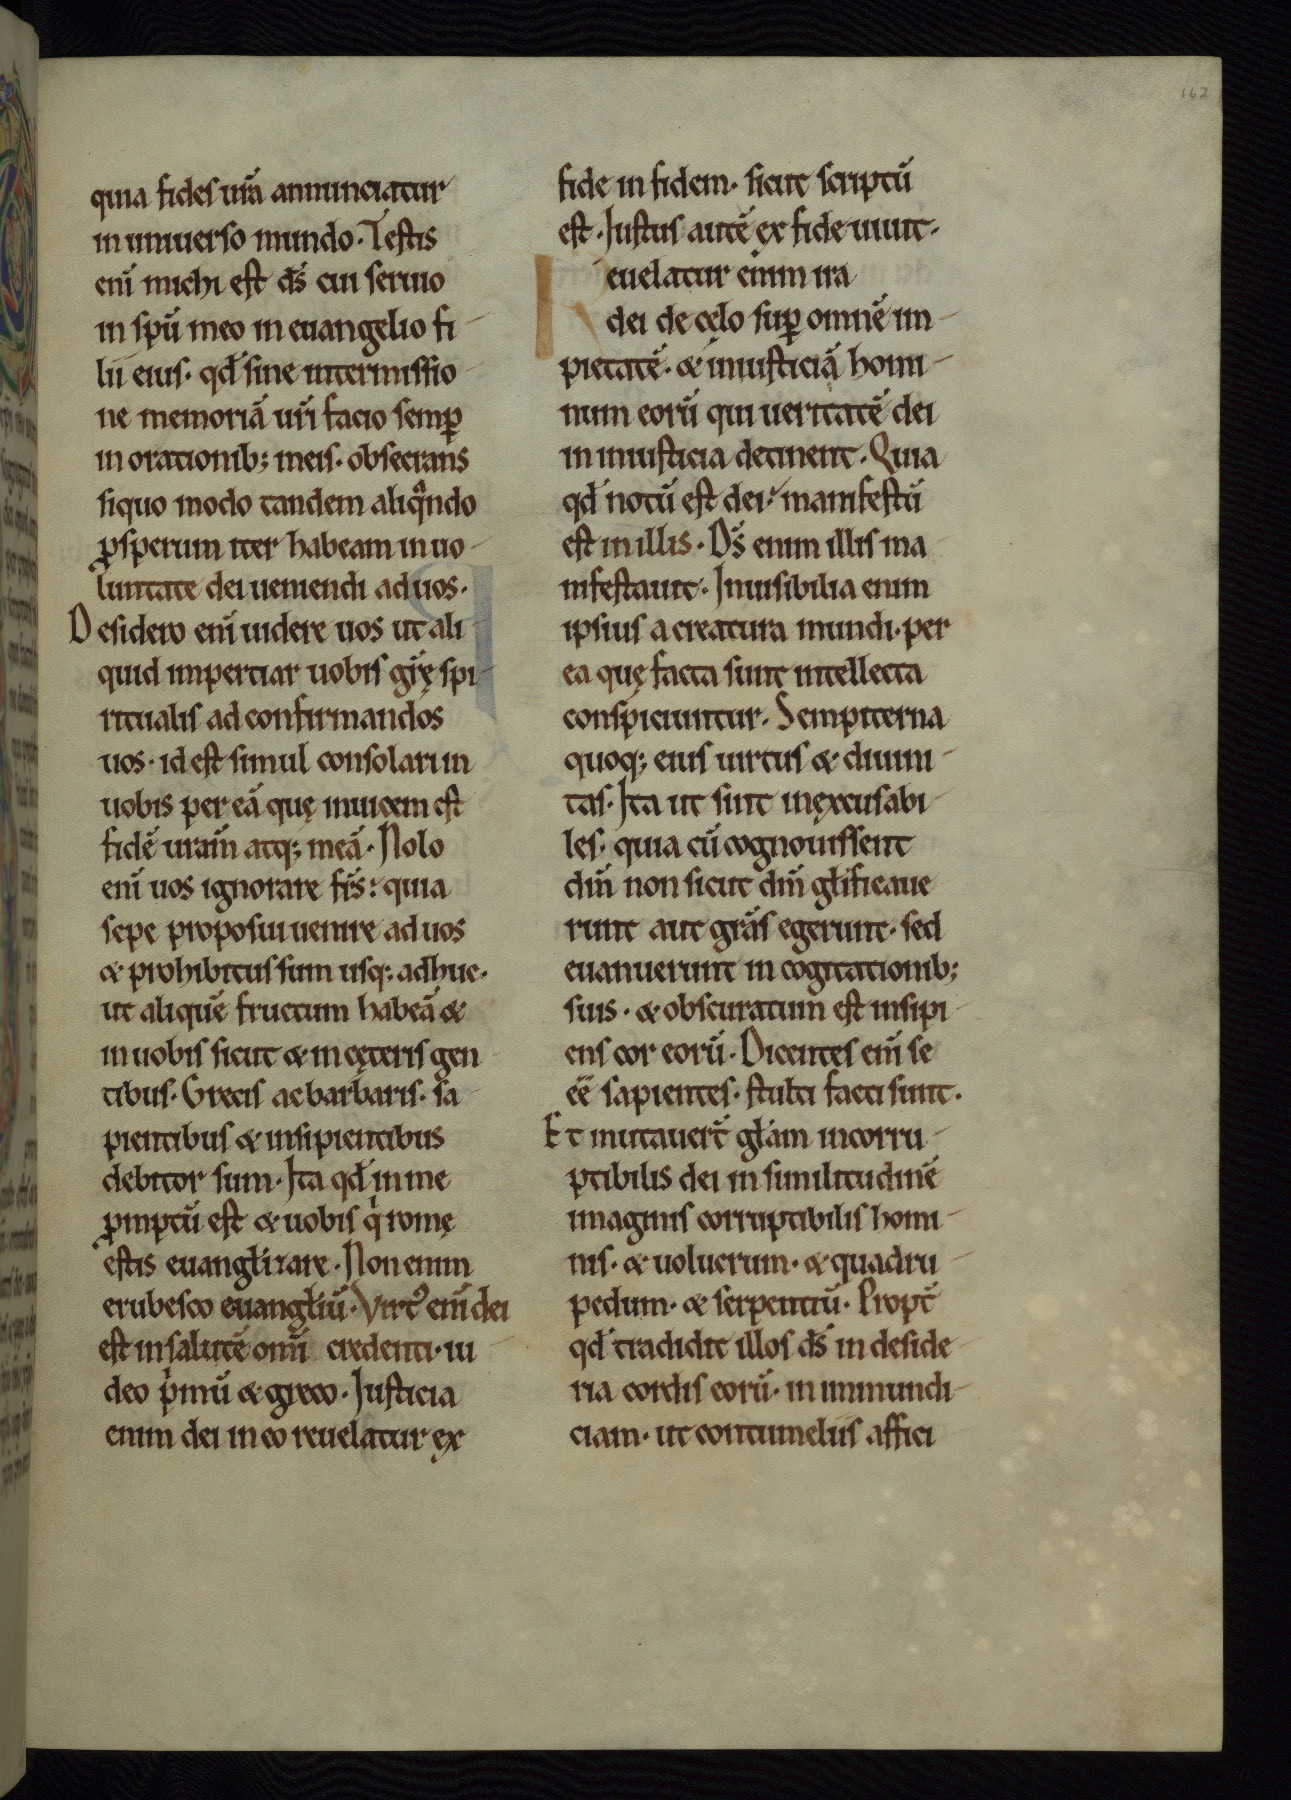 162
quia fides ur̄a annunciatur
in uniuerso mundo. Testis
enī michi est d̄s cui seruio
in spū meo in euangelio fi-
lii eius. qd̄ sine intermissio-
ne memoriā ur̄i facio semꝑ
in orationib; meis. obsecrans
siquo modo tandem aliqᵃndo
ꝓsperum iter habeam in uo-
luntate dei ueniendi ad uos.
Desidero enī uidere uos ut ali-
quid impertiar uobis gr̄ę spi-
ritualis ad confirmandos
uos. id est simul consolari in
uobis per eā quę inuicem est
fidē uram̄ atq; meā. Nolo
enī uos ignorare fr̄s: quia
sepe proposui uenire ad uos
& prohibitus sum usq; adhuc.
ut aliquē fructum habeā &
in uobis sicut & in cęteris gen-
tibus. Grecis ac barbaris. sa-
pientibus & insipientibus
debitor sum. Ita qd̄ in me
ꝓmptū est & uobis qⁱ romę
estis euangłizare. Non enim
erubesco euangłiū. Virtꝰ enī dei
est in salutē omī credenti. iu-
deo pⁱmū & greco. Justicia
enim dei in eo reuelatur ex
fide in fidem. sicut scriptū
est. Justus autē ex fide uiuit.
Reuelatur enim ira
dei de cęlo suꝑ omnē im-
pietatē. & iniusticiā homi-
num eorū qui ueritatē dei
in iniusticia detinent. Quia
qd̄ notū est dei: manifestū
est in illis. D̄s enim illis ma-
nifestauit. Inuisibilia enim
ipsius a creatura mundi. per
ea quę facta sunt intellecta
conspiciuntur. Sempiterna
quoq; eius uirtus & diuini-
tas. Ita ut sint inęxcusabi-
les. quia cū cognouissent
dm̄ non sicut dm̄ głificaue
runt aut grā̄s egerunt. sed
euanuerunt in cogitationib;
suis. & obscuratum est insipi-
ens cor eorū. Dicentes enī se
eē̄ sapientes. stulti facti sunt.
Et mutauer̄t głam incorru-
ptibilis dei in similitudinē
imaginis corruptibilis homi-
nis. & uolucrum. & quadru-
pedum. & serpentiū. Propt̄
qd̄ tradidit illos d̄s in deside-
ria cordis eorū. in inmundi-
ciam. ut contumeliis affici